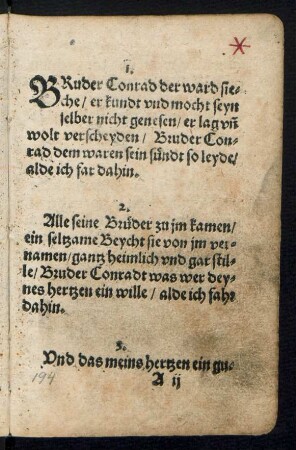 1.
BRuder Conrad der ward sie-
che / er kundt vnd mocht seyn
selber nicht genesen / er lag vñ
wolt verscheyden / Bruder Con-
rad dem waren sein sündt so leyde /
alde ich far dahin.
2.
Alle seine Brüder zu jm kamen /
ein seltzame Beycht sie von jm ver-
namen / gantz heimlich vnd gar stil-
le / Bruder Conradt was wer dey-
nes hertzen ein wille / alde ich fahr
dahin.
3.
Vnd das meins hertzen ein gu-
194
A ij